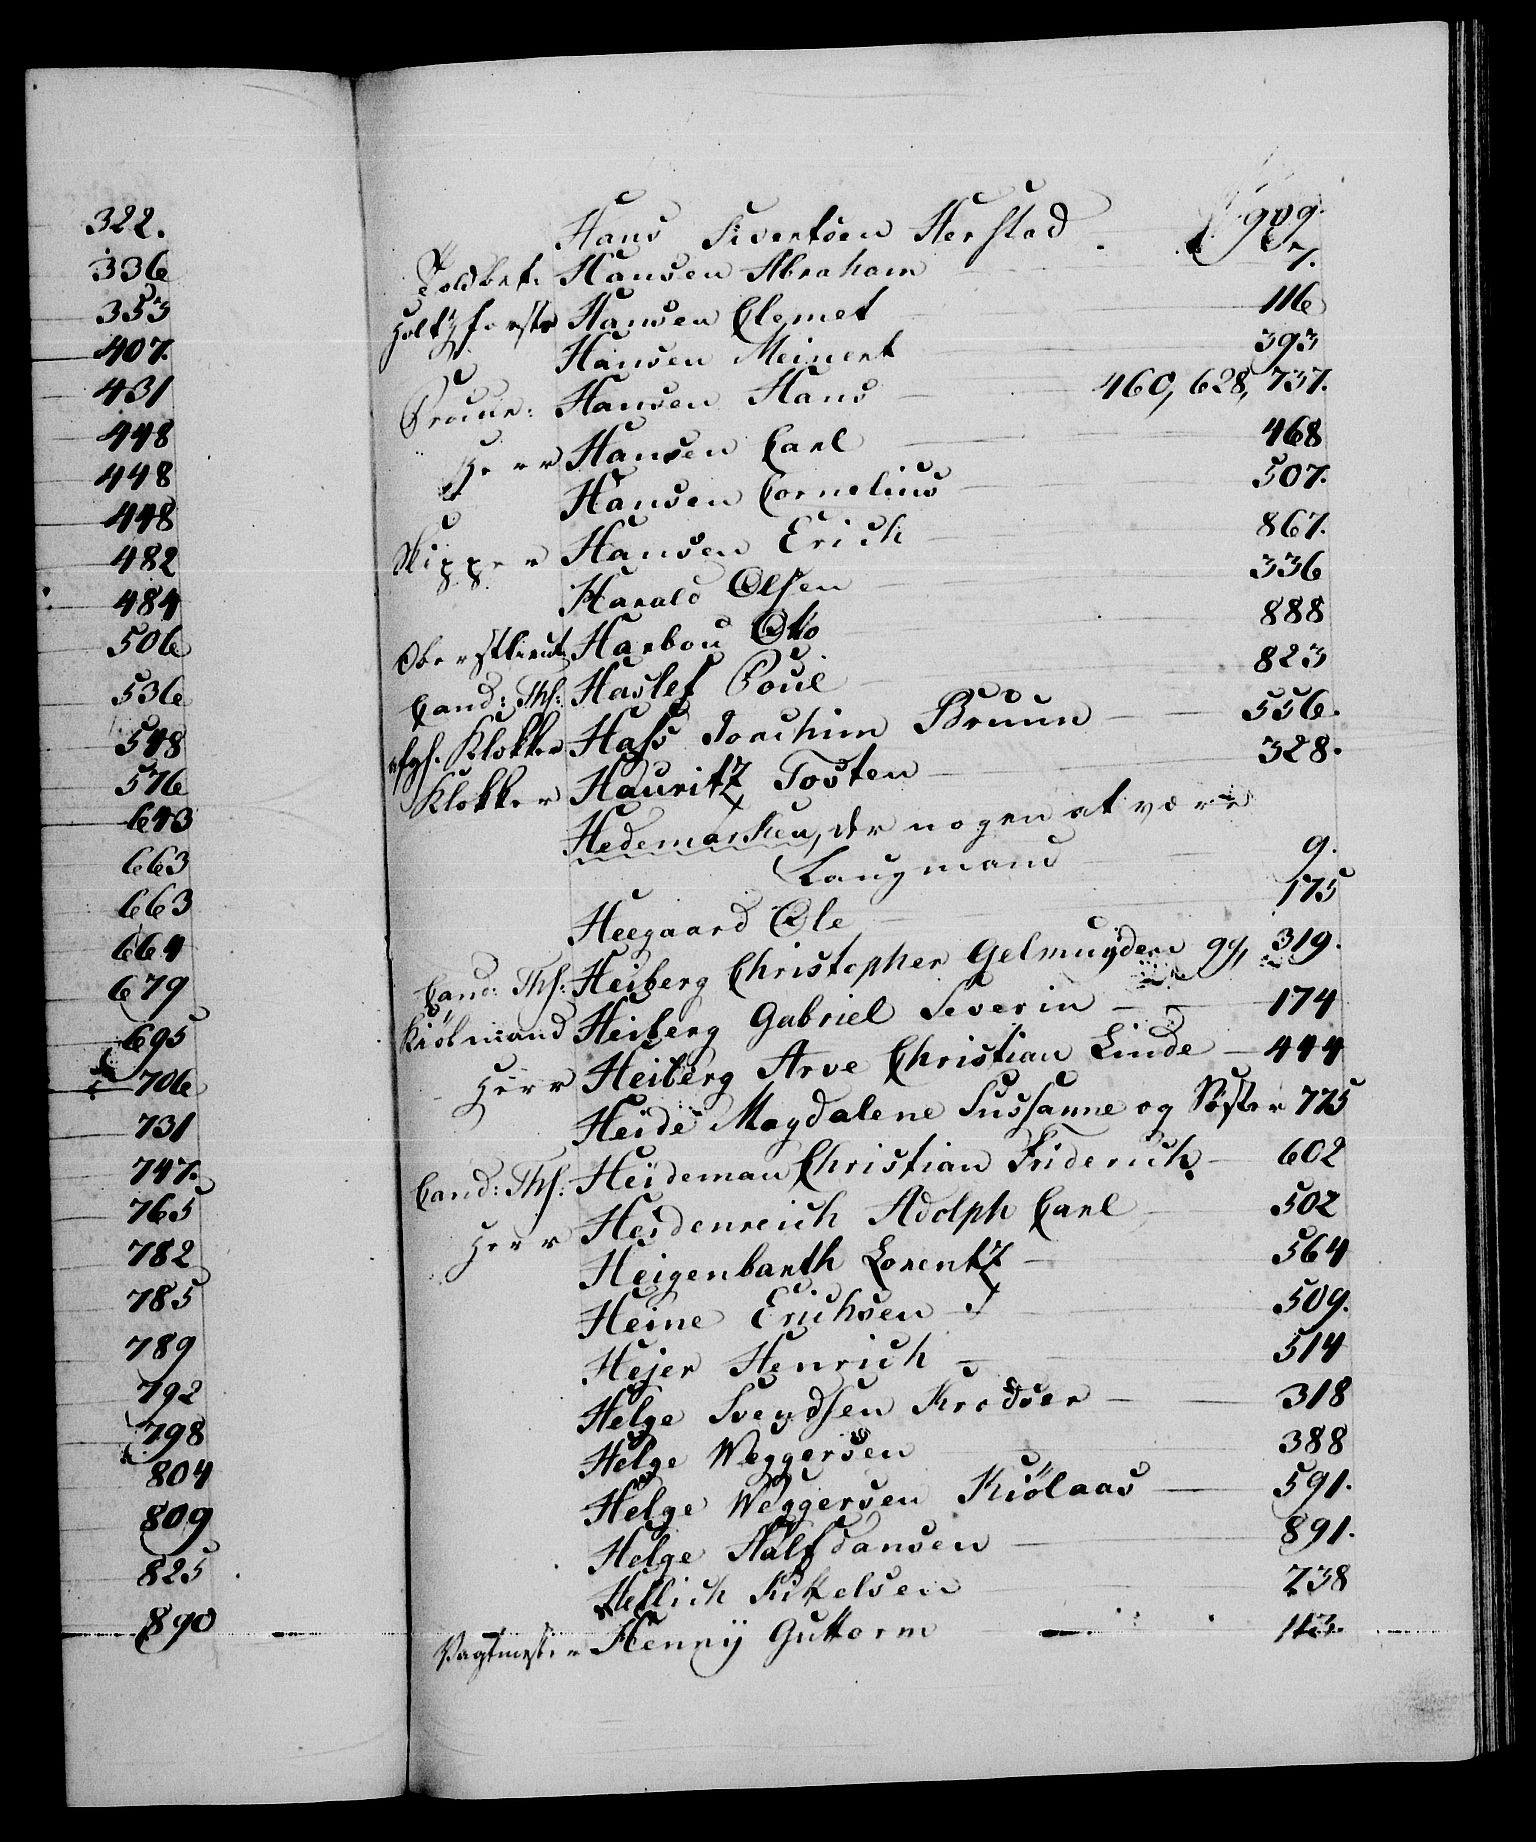 322.
336
353
407.
431
448
448
448
482
484
506
536
548
576
643
663
663
664
679
695
706
731
747.
765
782
785
789
792
798
804
809
825
890
Hans Sivertsen Herstad 909.
Toldbet. Hansen Abraham 7.
Holtzførster Hansen Clemet 116
Hansen Meinert 393
Procur: Hansen Hans 460, 628, 737.
Herr Hansen Carl 468
Hansen Cornelius 507.
Skipper Hansen Erich 867.
Harald Olsen 336
Oberstlieut: Harbou Otto 888
Cand: Th: Haslef Poul 823
Klokker Hass Joachim Bruun 556.
Klokker Hauritz Tosten 328.
Hedemarken, der nogen at være
Laugmand 9.
Heegaard Ole 175
Cand: Th: Heiberg Christopher Gelmuyden 99, 319.
Kiøbmand Heiberg Gabriel Severin 174
Herr Heiberg Arve Christian Linde 444
Heide Magdalene Sussanne og Søster 775
Cand: Th: Heideman Christian Friderich 602
Herr Heidenreich Adolph Carl 502
Heigenbarth Lorentz 564
Heine Erichsen 509.
Hejer Henrich 514
Helge Svendsen Krodser 318
Helge Weggersen 388
Helge Weggersen Kiölaas 591.
Helge Halfdansen 891.
Hellich Kittelsen 238
Vagtmester Henny Guttorm 113.